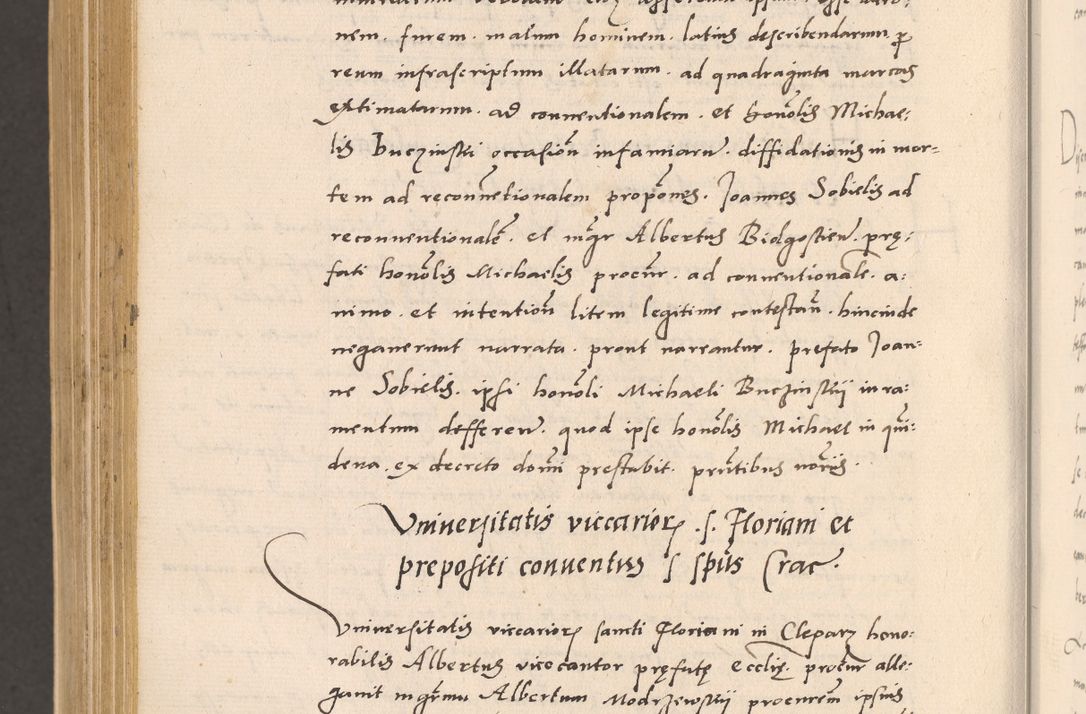 nem. furem. malum hominem. latius describendarum ꝑ
reum infrascriptum illatarum. ad quadraginta marcas
extimatarum. ad conuentionalem. et honōlis Michae:
lis Buczinskii occasiōn infamiarū. diffidationis in mor=
tem ad reconūetionalem propōnes. Joannes Sobielis ad
reconuentionalē. et mḡr Albertus Bidgostień. prę:
fati honōlis Michaelis procūr. ad conuentionale. a:
nimo. et intentiōn litem legitime contestañ. hincinde
negauerunt narrata. prout narrantur. prefato Joan:
ne Sobielis. ipsi honōli Michaeli Buczinskii iura:
mentum deffereń. quod ipse honōlis Michael in quī:
dena. ex decreto domī prestabit. prn̄tibus nōrijs.
Vniuersitatis viccarioꝝ .s. Floriani et
prepositi conuentus s spūs Crac.
Vniuersitatis viccarioꝝ sancti Floriani in Clepaꝝ hono:
rabilis Albertus vicecantor pręfatę ecclię. procūr alle:
gauit mgr̄m Albertum Modrzewskii procurem̄ ipsius